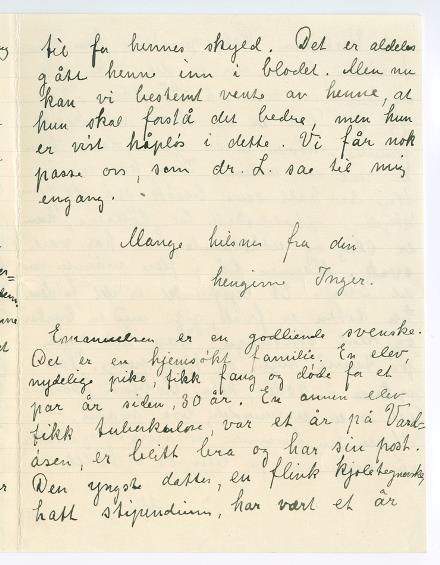 til for hennes skyld. Det er aldeles
gått henne inn i blodet. Men nu
kan vi bestemt vente av henne, at
hun skal forstå det bedre, men hun
er visst håpløs i dette. Vi får nok
passe oss, som dr. L. sae til mig
engang.
Mange hilsner fra din
hengivne Inger.
Emanuelsen er en godlidende svenske.
Det er en hjemsøkt familie. En elev,
nydelige pike, fikk fang og døde for et
par år siden, 30 år. En annen elev
fikk tuberkulose, var et år på Vard-
åsen, er blitt bra og har sin post.
Den yngste datter, en flink kjoletegnerske,
hatt stipendium, har vært et år